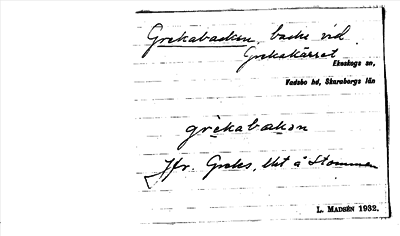 Grekabacken, backe vid
Grekakärret
Ekeskogs sn,
Vadsbo hd, Skaraborgs län
grekabakan
Jfr. Greks, lht å Stommen
L. MADSÉN 1932.